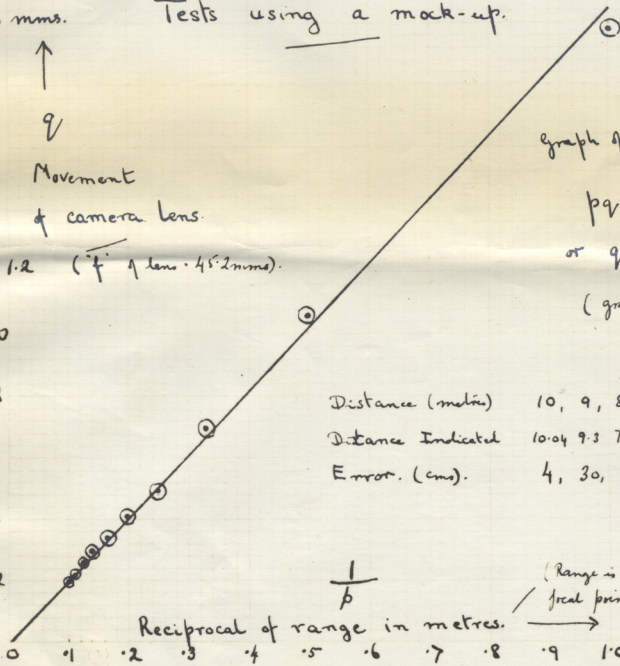 mms.
Tests using a mock-up.
q
Movement
of camera lens.
1.2 ("f" of lens. 45.2 mms).
Graph
pq
or q
Distance (metres) 10, 9, 8
Distance Indicated 10.04 9.3 7
Error. (cms). 4, 30,
1
p
(Range is
focal poin
Reciprocal of range in metres.
0 .1 .2 .3 .4 .5 .6 .7 .8 .9 1.0